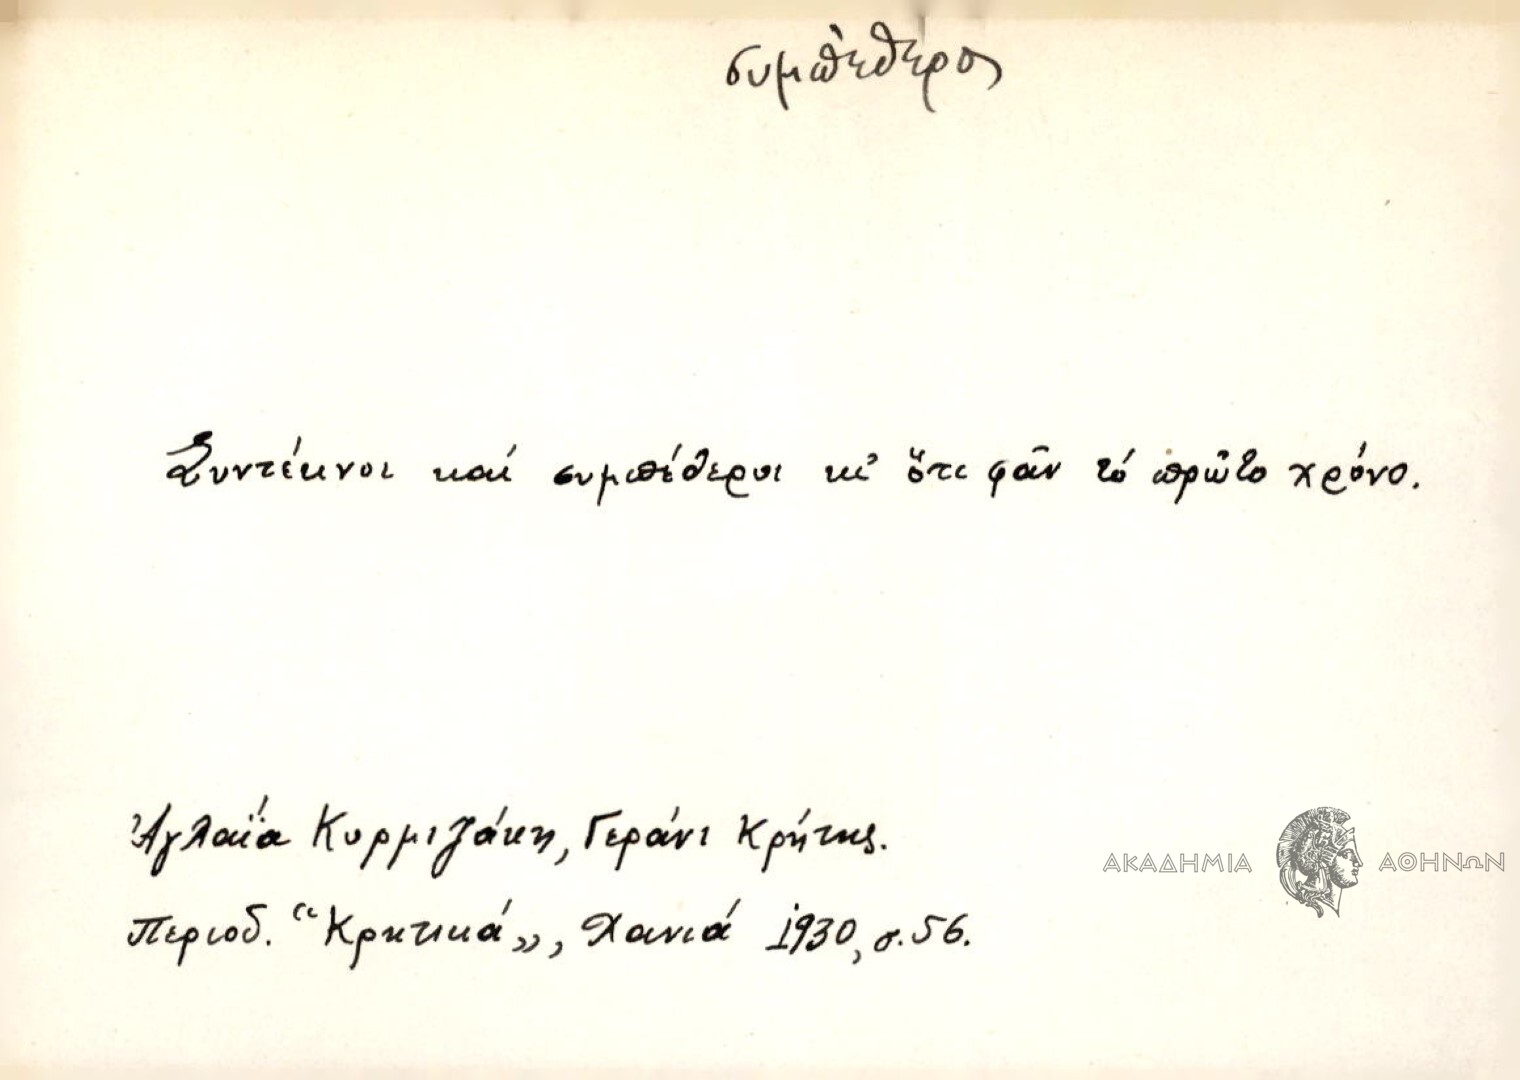 συμπέθερος
Συντέκνοι καί συμπέθεροι κι' ὅτι φᾶν τό πρῶτο χρόνο.
Ἀγλαΐα Κυρμιζάκη, Γεράνι Κρήτης.
ΑΚΑΔΗΜΙΑ ΑΘΗΝΩΝ
Περιοδ. "Κρητικά„, Χανιά 1930, σ. 56.